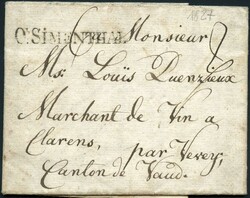 1827
O: SIMENTHAL Monsieur
Mr: Louïs Duenzieux
Marchant de Vin a
Clarens, par Vevey,
Canton de Vaud.